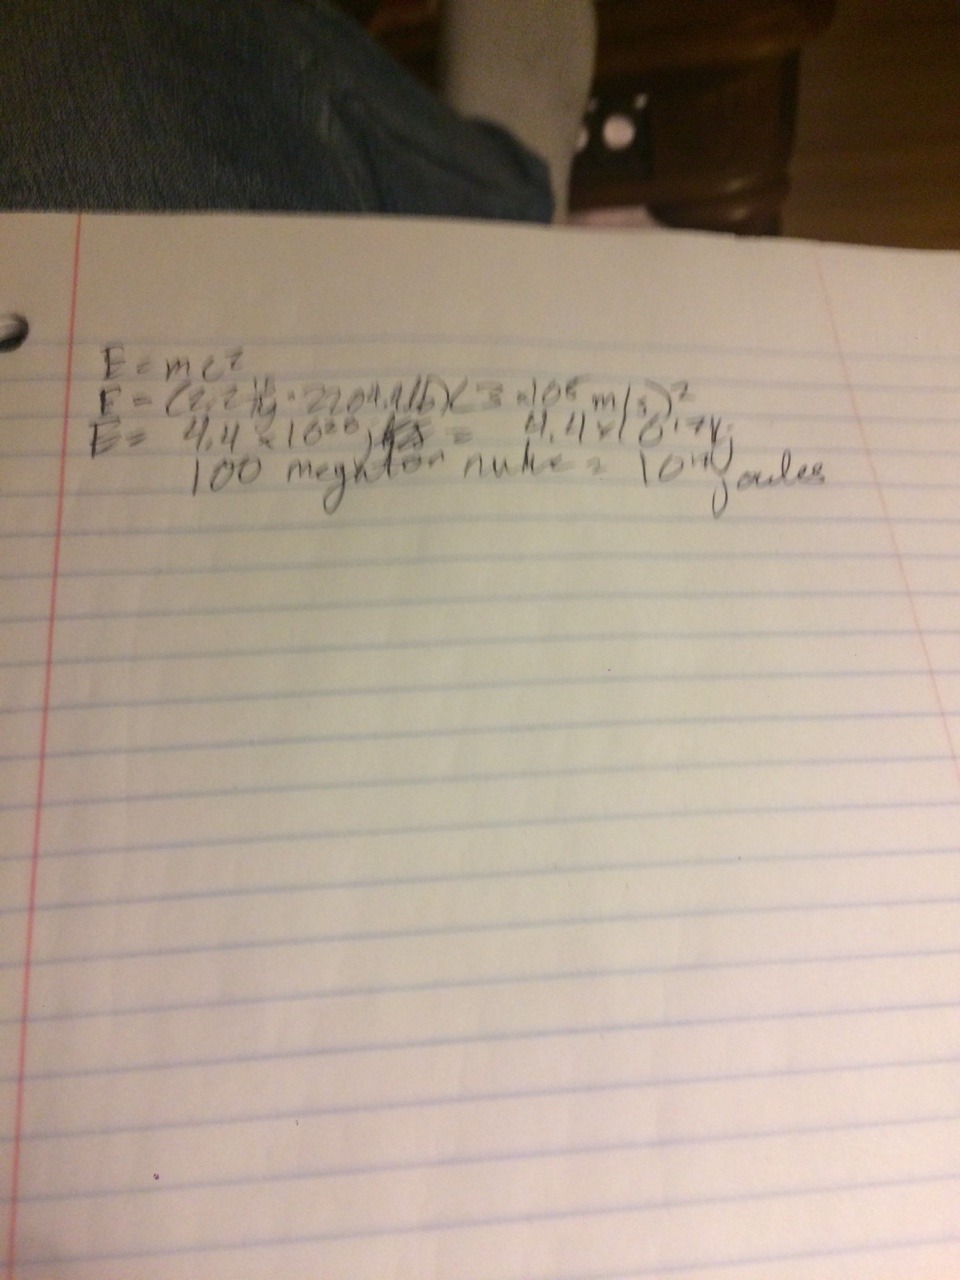 E = mc²
E = (2.2 · 2204.4lb)(3 × 10⁸ m/s)²
E = 4.4 × 10²⁰ j = 4.4 × 10¹⁷ kj
100 megaton nuke = joules